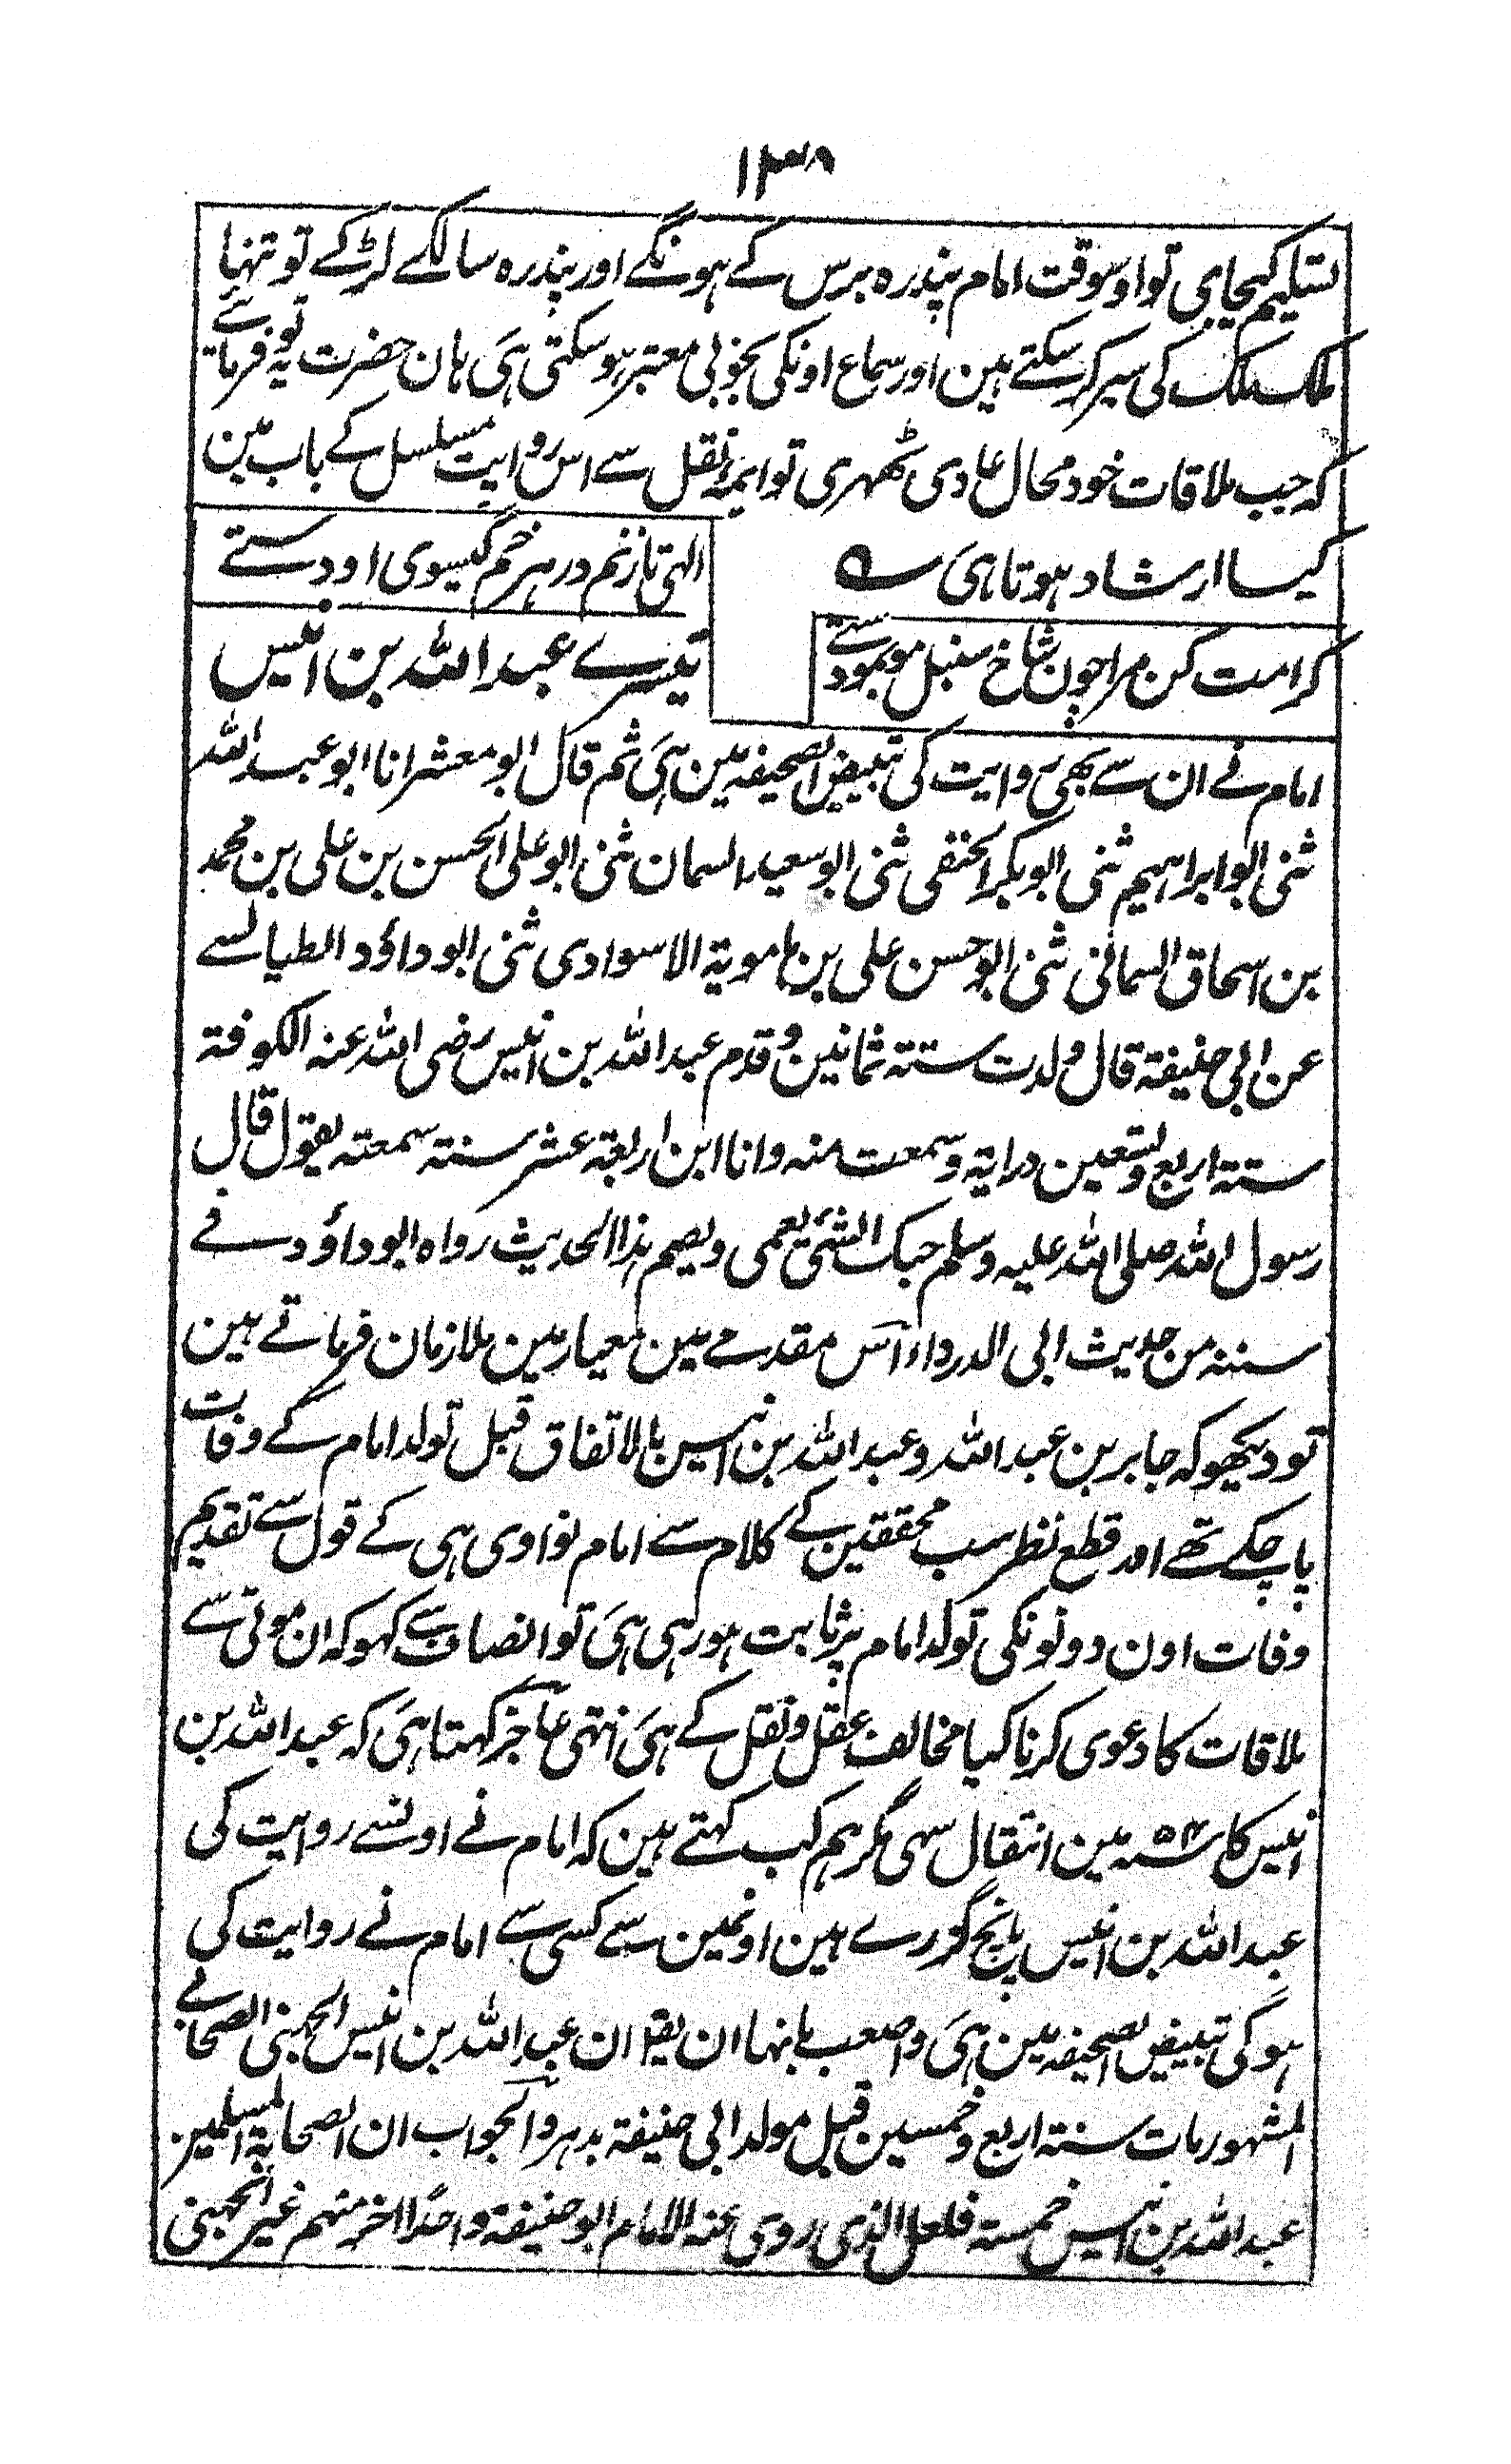 ۱۳۸
تسلیم کیجای تو اوسوقت امام پندرہ برس کے ہونگے اور پندرہ سالکے لڑکے تو تنہا
ملک ملک کی سیر کر سکتے ہین اور سماع اونکی بخوبی معتبر ہو سکتی ہی ہان حضرت یہ تو فرمائے
کہ جب ملاقات خود محال عادی ٹھہری تو ایمۂ نقل سے اس روایت مسلسل کے باب مین
کیسا ارشاد ہوتا ہی ؎ الہی تا زنم در ہر خم گیسوی او دستے
کرامت کن مرا چون شاخ سنبل موبمو دستے تیسرے عبد اللہ بن انیس
امام نے ان سے بھی روایت کی تبییض الصحیفہ مین ہی ثم قال ابو معشر انا ابو عبد اللہ
ثنی ابو ابراہیم ثنی ابو بکر الحنفی ثنی ابو سعید السمان ثنی ابو علی الحسن بن علی بن محمد
بن اسحاق السمانی ثنی ابو حسن علی بن بامویۃ الاسوادی ثنی ابو داؤد الطیالسے
عن ابی حنیفۃ قال ولدت سنتہ ثمانین و قدم عبد اللہ بن انیس رضی اللہ عنہ الکوفۃ
سنتہ اربع و تسعین درایۃ و سمعت منہ و انا ابن اربعۃ عشر سنتہ سمعتہ یقول قال
رسول اللہ صلی اللہ علیہ وسلم حبک الشئ یعمی و یصم ہذا الحدیث رواہ ابو داؤد فے
سننہ من حدیث ابی الدرداء اس مقدمے مین معیار مین ملازمان فرماتے ہین
تو دیکھو کہ جابر بن عبد اللہ و عبد اللہ بن انیس بالاتفاق قبل تولد امام کے وفات
پا چکے تھے اور قطع نظر سب محققین کے کلام سے امام نواوی ہی کے قول سے تقدیم
وفات اون دونونکی تولد امام پر ثابت ہو رہی ہی تو انصاف سے کہو کہ ان موتی سے
ملاقات کا دعوی کرنا کیا مخالف عقل و نقل کے ہی انتہی عاجز کہتا ہی کہ عبد اللہ بن
انیس کا ۵۴ سنہ مین انتقال سہی مگر ہم کب کہتے ہین کہ امام نے اونسے روایت کی
عبد اللہ بن انیس پانچ گزرے ہین اونمین سے کسی سے امام نے روایت کی
ہو گی تبییض الصحیفہ مین ہی و اصعب ما بنہا ان یقل ان عبد اللہ بن انیس الجہنی الصحابے
المشہور مات سنتہ اربع و خمسین قبل مولد ابی حنیفۃ بدہر و الجواب ان الصحابۃ المسلمین
عبد اللہ بن انیس خمستہ فلعل الذی روی عنہ الامام ابو حنیفۃ واحدًا اخر منہم غیر الجہنی